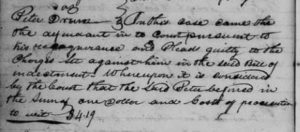 Peter Drum } In this case came the
the defendant in to Court pursuant to
his recognizance and Plead guilty to the
Charges set against him in the said Bill of
indictment. Whereupon it is considered
by the Court that the said Peter be fined in
the Sum of one dollar and Costs of prosecution
to wit $4.19